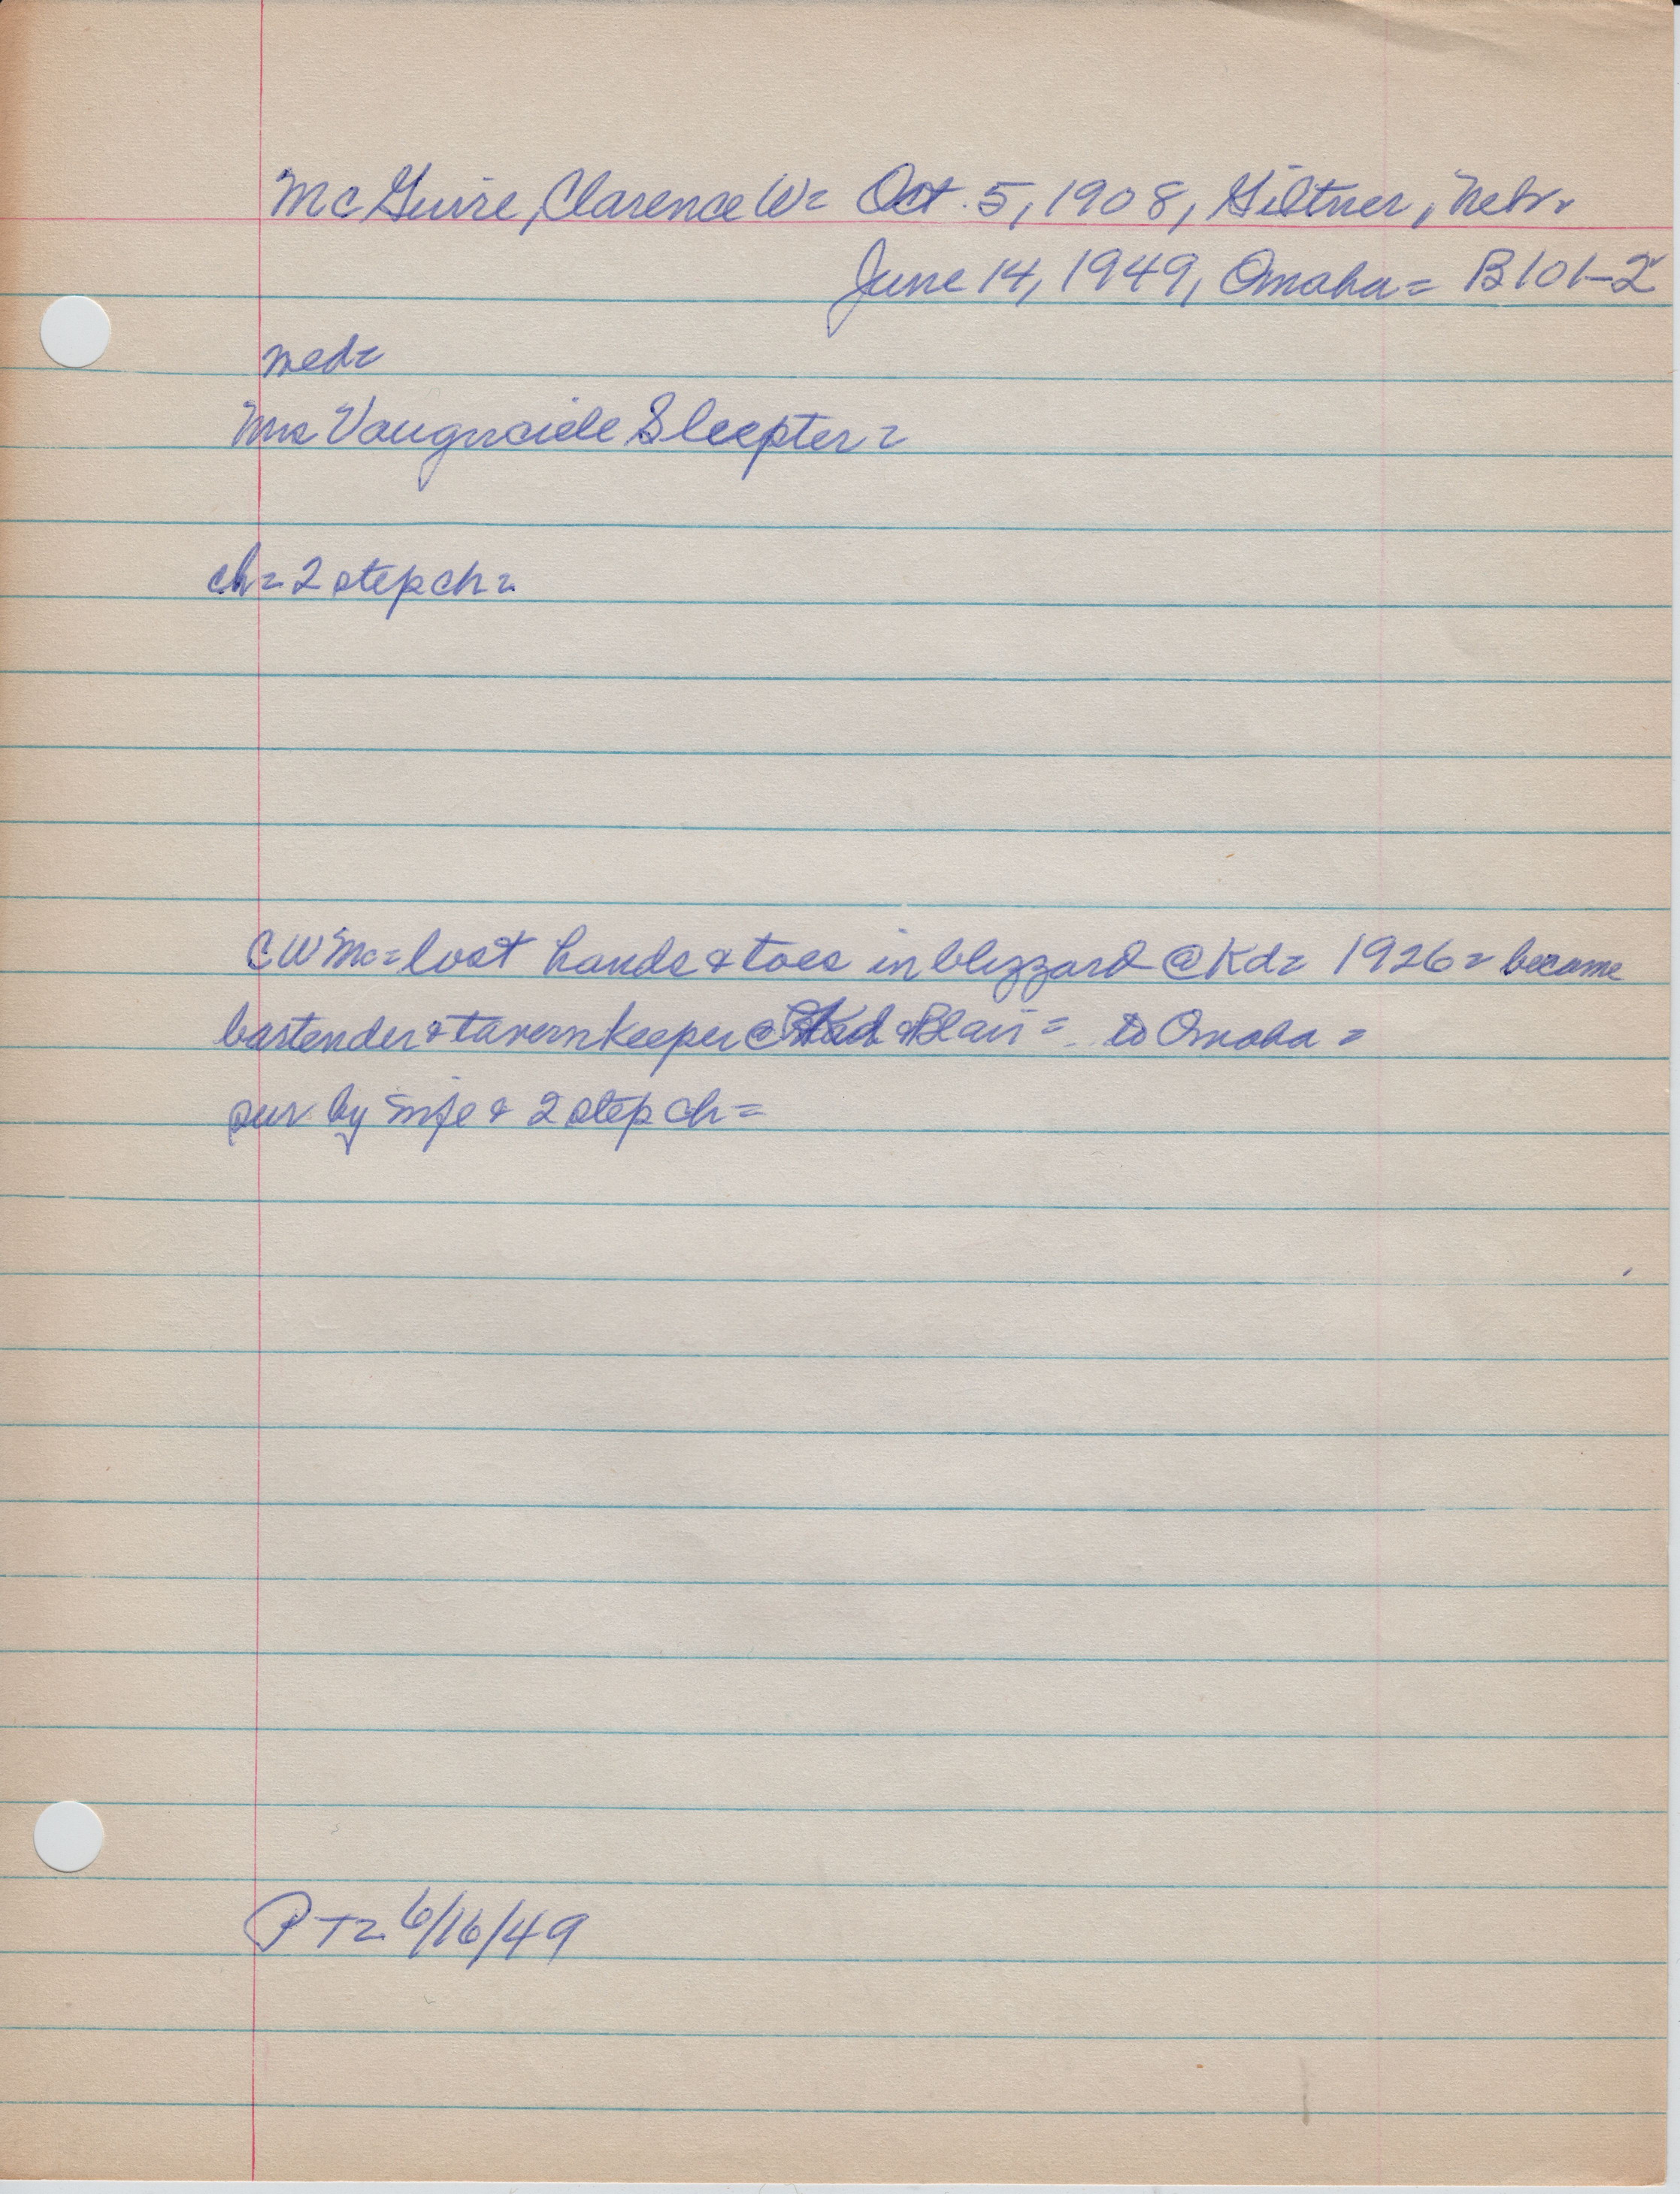 McGuire, Clarence W= Oct. 5, 1908, Giltner, Nebr.
June 14, 1949, Omaha= B101-2
med=
Mrs Sleepter=
ch= 2 step ch=
C W Mc= lost hands & toes in blizzard @ Kd= 1926= became
bartender & tavernkeeper @ Blair= to Omaha=
sur. by wife & 2 step ch=
PT= 6/16/49